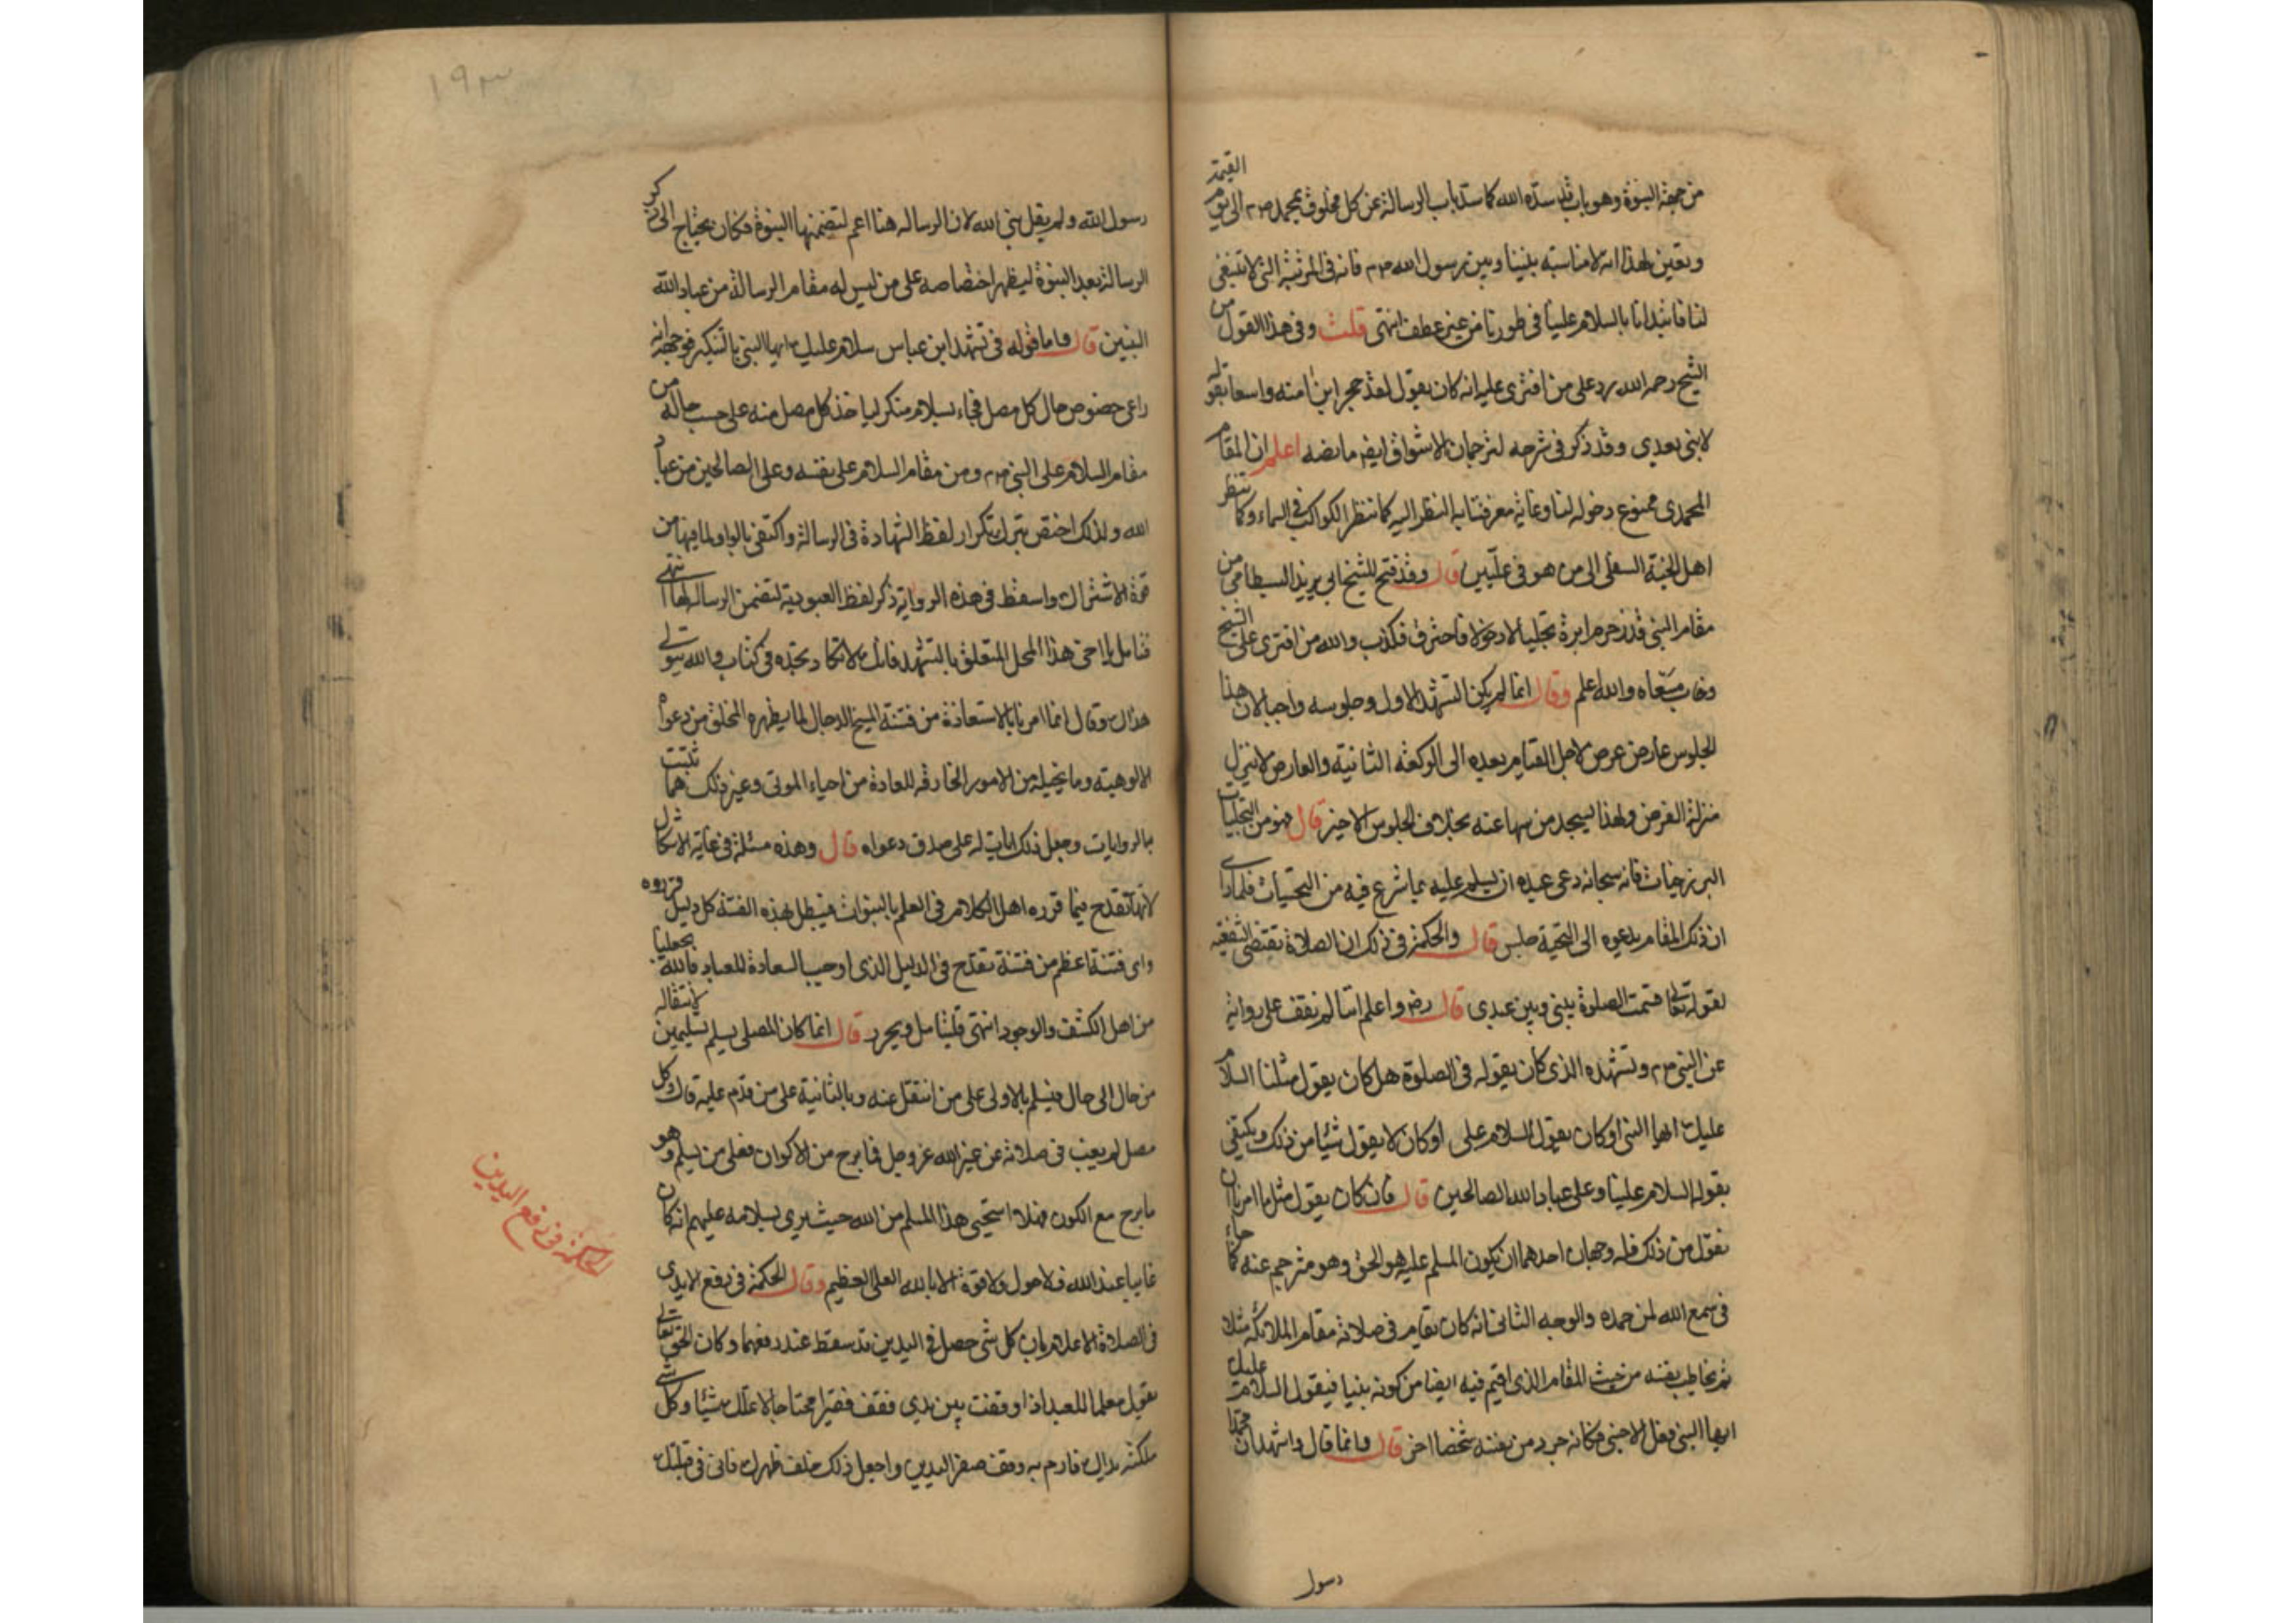 من جهة النبوة وهو باب قد سده الله كما سد باب الرسالة عن كل مخلوق بمحمد صم الى يوم القيمة
وتعين بهذا انه لا مناسبة بيننا وبين رسول الله صم فانه فى المرتبة التى لا تنبغى
لنا فابتدانا بالسلام علينا فى طورنا من غير عطف انتهى قلت وفى هذا القول من
الشيخ رحمه الله رد على من افترى عليه انه كان يقول لقد حجر ابن امنه واسعا بقوله
لا نبى بعدى وقد ذكر فى شرحه لترجمان الاشواق ايضا ما نصه اعلم ان المقام
المحمدى ممنوع دخوله لنا وغاية معرفتنا به النظر اليه كما ننظر الكواكب فى السماء وكما تنظر
اهل الجنة السفلى الى من هو فى عليين قال وقد فتح للشيخ ابى يزيد البسطامى من
مقام النبى قدر خرم ابرة تجليا لا دخولا فاحترق فكذب والله من افترى على الشيخ
وخاب مسعاه والله اعلم وقال انما لم يكن التشهد الاول وجلوسه واجبا لان هذا
الجلوس عارض عرض لاجل القيام بعده الى الركعة الثانية والعارض لا ينزل
منزلة الفرض ولهذا سجد من سها عنه بخلاف الجلوس الاخير قال فهو من التجليات
البرزخيات فانه سبحانه دعى عبده ان يسلم عليه بما شرع فيه من التحيات فلما راى
ان ذلك المقام يدعوه الى التحية جلس قال والحكمة فى ذلك ان الصلاة تقتضى الشفعية
لقوله تعالى قسمت الصلوة بينى وبين عبدى قال رض واعلم اننا لم نقف على رواية
عن النبى صم وتشهده الذى كان يقوله فى الصلوة هل كان يقول مثلنا السلام
عليك ايها النبى او كان يقول السلام على او كان لا يقول شيئا من ذلك ويكتفى
بقوله السلام علينا وعلى عباد الله الصالحين قال فان كان يقول مثل ما امرنا ان
نقول من ذلك فله وجهان احدهما ان يكون المسلم عليه هو الحق وهو مترجم عنه كما جاء
فى سمع الله لمن حمده والوجه الثانى انه كان يقام فى صلاته مقام الملائكة مثلا
ثم يخاطب نفسه من حيث المقام الذى اقيم فيه ايضا من كونه نبيا فيقول السلام عليك
ايها النبى فعل الاجنبى فكانه جرد من نفسه شخصا اخر قال وانما قال واشهد ان محمدا
رسول
١٩٣
رسول الله ولم يقل نبى الله لان الرسالة هنا اعم لتضمنها النبوة فكان يحتاج الى ذكر
الرسالة بعد النبوة ليظهر اختصاصه على من ليس له مقام الرسالة من عباد الله
النبين قال واما قوله فى تشهد ابن عباس سلام عليك ايها النبى بالتنكير فوجهه انه
راعى خصوص حال كل مصل فجاء بسلام منكر لياخذ كل مصل منه على حسب حاله من
مقام السلام على النبى صم ومن مقام السلام على نفسه وعلى الصالحين من عباد
الله ولذلك اختص بترك تكرار لفظ الشهادة فى الرسالة واكتفى بالواو لما فيها من
قوة الاشتراك واسقط فى هذه الرواية ذكر لفظ العبودية لتضمن الرسالة لها انتهى
فتامل يا اخى هذا المحل المتعلق بالتشهد فانك لا تكاد تجده فى كتاب والله يتولى
هداك وقال انما امرنا بالاستعاذة من فتنة المسيح الدجال لما يظهره للخلق من دعواه
الالوهية وما يخيله من الامور الخارقة للعادة من احياء الموتى وغير ذلك مما ثبتت
بالروايات وجعل ذلك ايات له على صدق دعواه قال وهذه مسئلة فى غاية الاشكال
لانها تقدح فيما قرره اهل الكلام فى العلم بالنبوات فيبطل بهذه الفتنة كل دليل قرروه
واى فتنة اعظم من فتنة تقدح فى الدليل الذى اوجب السعادة للعباد فالله يجعلنا
من اهل الكشف والوجود انتهى فليتامل ويحرر قال انما كان المصلى يسلم تسليمين لانتقاله
من حال الى حال فيسلم بالاولى على من انتقل عنه وبالثانية على من قدم عليه قال وكل
مصل لم يغب فى صلاته عن غير الله عز وجل فما برح من الاكوان فعلى من يسلم وهو
ما برح مع الكون فهلا استحيى هذا المسلم من الله حيث يرى بسلامه عليهم انه كان
غايبا عند الله فلا حول ولا قوة الا بالله العلى العظيم وقال الحكمة فى رفع الايدى
فى الصلاة الاعلام بان كل شى حصل فى اليدين قد سقط عند رفعهما وكان الحق تعالى
يقول معلما للعبد اذا وقفت بين يدى فقف فقيرا محتاجا لا تملك شيئا وكل شى
ملكته يداك فارم به وقف صفر اليدين واجعل ذلك خلف ظهرك فانى فى قبلتك
الحكمة فى رفع اليدين